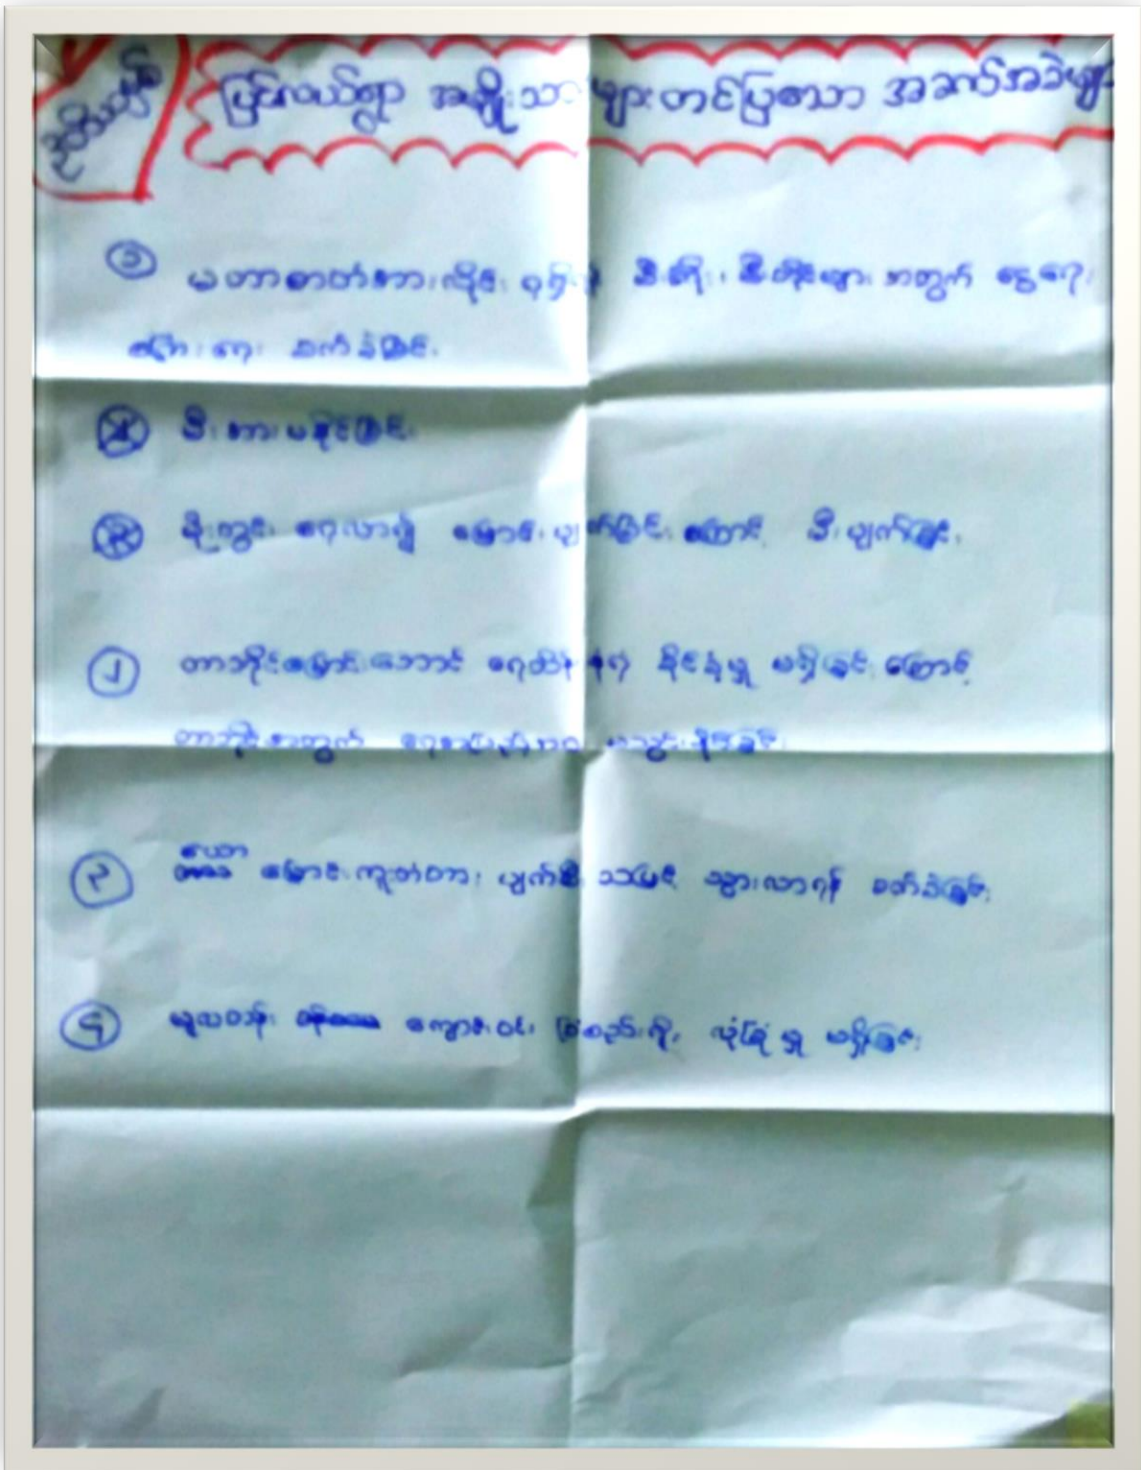 ဒုတိယ
ပြင်လယ်ရွာ အမျိုးသားများတင်ပြသော အခက်အခဲများ
၁ မဟာဓာတ်အားလိုင်း မရှိ၍ မီးကြိုး၊ မီးတိုင်များ အတွက် ငွေရေး
ကြေးရေး ခက်ခဲခြင်း
မီးအားမနိုင်ခြင်း
မိုးတွင်း ရေလာ၍ မြောင်းပျက်ခြင်းကြောင့် မီးပျက်ခြင်း
၂ တာဘိုင်မြောင်းဘောင် ရေထိန်း နိုင်မှု မရှိခြင်းကြောင့်
တာဘိုင်အတွက် မသွင်းနိုင်ခြင်း
၃ ယော မြောင်းကူးတံတား ပျက်စီးသဖြင့် သွားလာရန် ခက်ခဲခြင်း
၄ မူလတန်း ကျောင်းဝင်း ခြံစည်းရိုး လုံခြုံမှု မရှိခြင်း